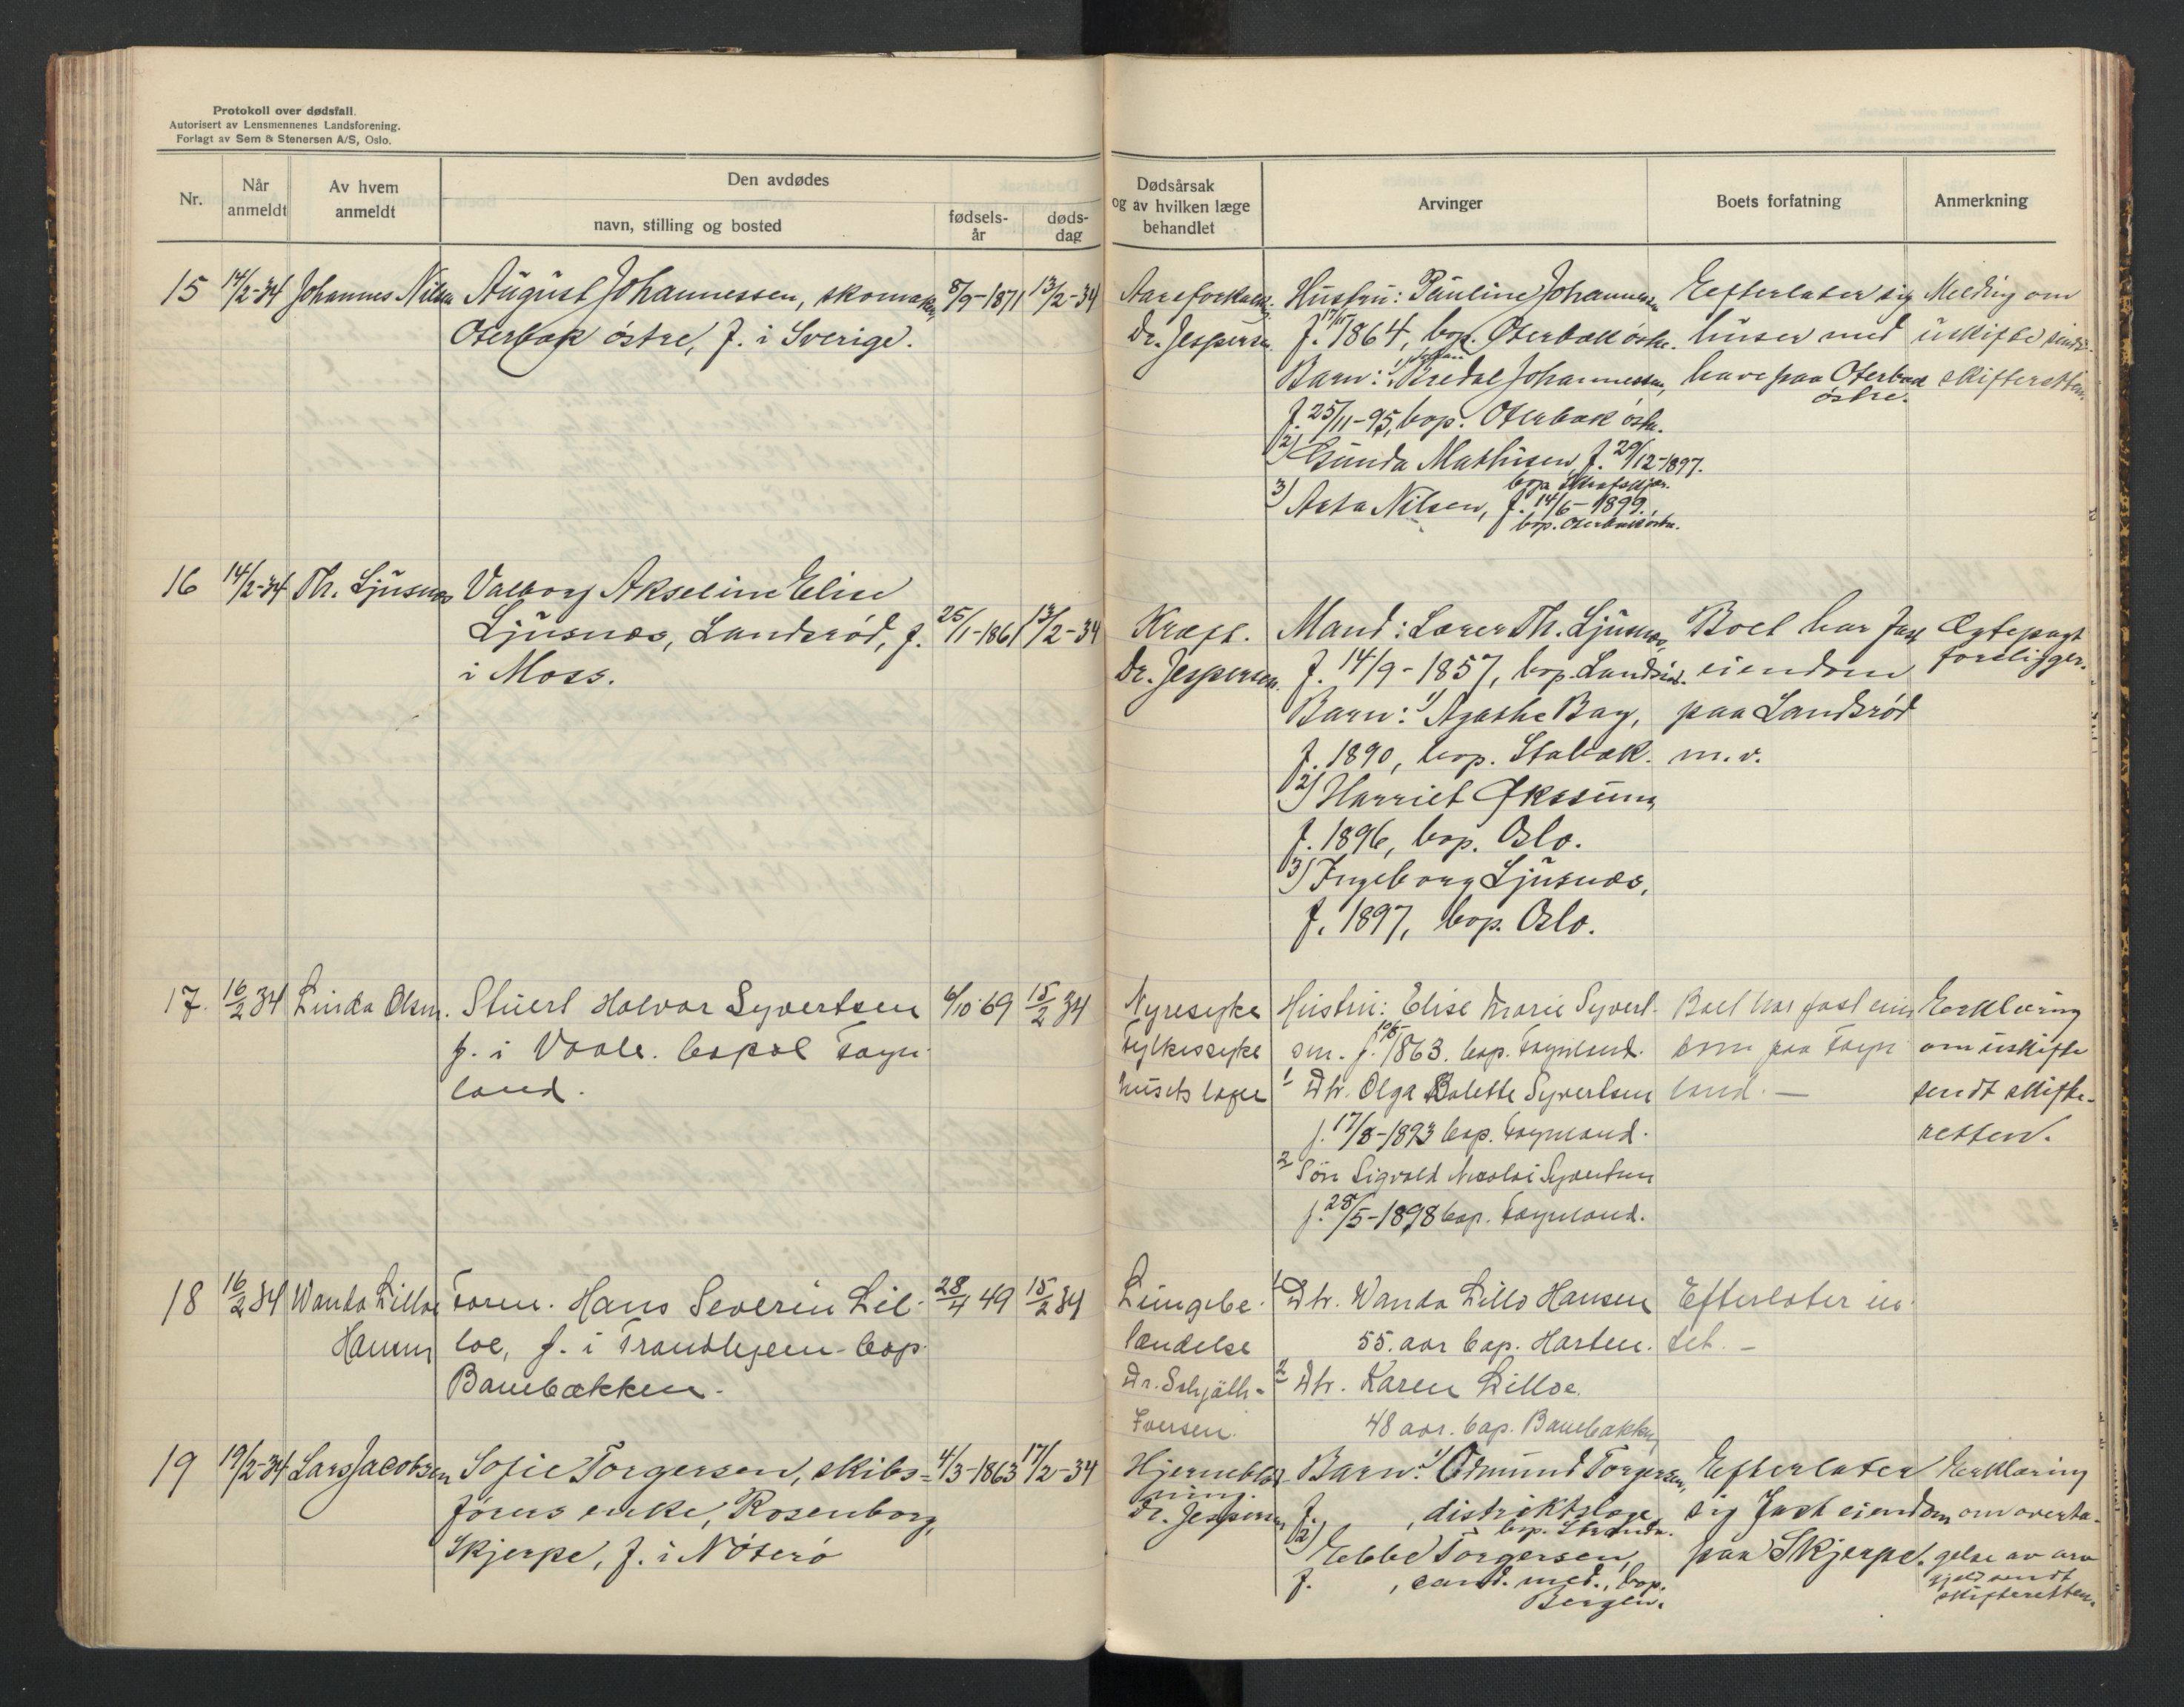 Protokoll over dødsfall.
Autorisert av Lensmennenes Landsforening.
Forlagt av Sem & Stenersen A/S, Oslo.
Nr.
Når anmeldt
Av hvem anmeldt
Den avdødes
navn, stilling og bosted
fødsels-år
døds-dag
Dødsårsak og av hvilken læge behandlet
Arvinger
Boets forfatning
Anmerkning
15 14/2-34 Johannes Nilsen August Johannessen, skomaker, 8/9-1871 13/2-34
Oterbæk østre, f. i Sverige.
Aareforkalk.
Dr. Jespersen.
Hustru: Pauline Johannessen
f. 1864, bop. Oterbæk østre.
Barn: 1) Johannessen,
f. 25/11-95, bop. Oterbæk østre.
2) Gunda Mathisen, f. 29/12-1897.
bop.
3) Asta Nilsen, f. 14/6-1899.
bop. Oterbæk østre.
Efterlater sig
huser med
have paa Oterbæk
østre.
Melding om
uskifte sendt
skifteretten.
16 14/2-34 Th. Ljusnæs Valborg Akseline Elise
Ljusnæs, Landsrød, f. 25/1-1861 13/2-34
i Moss.
Kræft.
Dr. Jespersen.
Mand: Lærer Th. Ljusnæs,
f. 14/9-1857, bop. Landsrød.
Barn: 1) Agathe Bay,
f. 1890, bop. Stabæk.
2) Harriet
f. 1896, bop. Oslo.
3) Ingeborg Ljusnæs,
f. 1897, bop. Oslo.
Boet har fast
eiendom
paa Landsrød
m. v.
Ægtepagt
foreligger.
17. 16/2 34 Linda Olsen. Stuert Halvor Syvertsen 6/10-69 15/2 34
f. i Vaale. bopæl Føyn-
land.
Nyresyke
Fylkessyke
husets læge
Hustru: Elise Marie Syvert-
sen. f. 1863. bop. Føynland.
1 Dtr. Olga Bolette Syvertsen
f. 17/8-1893 bop. Føynland.
2 Søn Sigvald Nicolai Syvertsen
f. 28/5-1898 bop. Føynland.
Boet har fast eien
dom paa Føyn
land. —
Erklæring
om uskifte
sendt skifte-
retten.
18 16/2 34 Wanda Lilloe Hansen Hans Severin Lil- 28/4 49 15/2 34
loe, f. i Trondhjem bop.
Banebakken.
Lungebe-
tændelse
Dr. Schjøth-
Iversen.
1 Dtr. Wanda Lilloe Hansen
55. aar bop. Horten.
2 Dtr. Karen Lilloe.
48 aar. bop. Banebakken
Efterlater in-
tet. —
19 19/2-34 Lars Jacobsen Sofie Torgersen, skibs- 4/3-1863 17/2-34
førers enke, Rosenborg,
Skjerpe, f. i Nøterø
Hjerneblød
ning.
Dr. Jespersen
Barn: 1) Odmund Torgersen,
f. , distriktslæge,
bop.
2) Ebbe Torgersen,
f. , cand. med., bop.
Bergen.
Efterlater
sig fast eiendom
paa Skjerpe.
Erklæring
om overta-
gelse av arv
gjeld sendt
skifteretten.